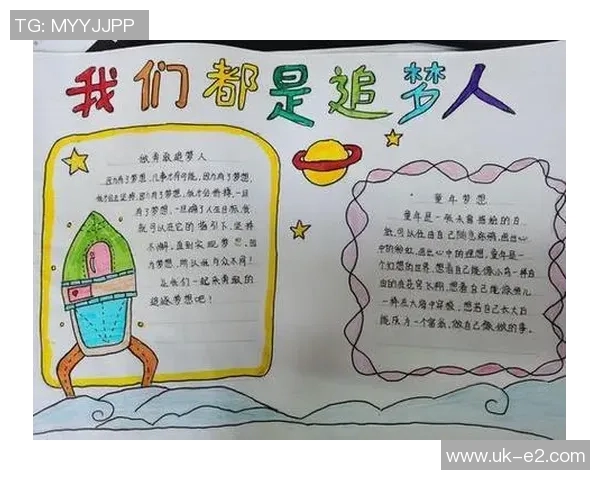 TG: MYYJJPP
我们都是追梦人
做勇敢追梦人
因为有了梦想,凡事才有可能,因为有了梦想,
他才会坚持,因为有了梦想,他才会拼搏,一旦
有了梦想,一旦确了人生目标,他
就可以在它的指引下,坚持
不懈,直到实现梦想,因
为梦想,所以他与众不同!
让我们一起来勇敢的
追逐梦想吧!
童年梦想
童年是一张未常描绘的白
纸,可以任由自己随意的画,画出心
中的彩虹,画出心中的理想,童年是一
个幻想的世界,想着自己能像小鸟一样自
由的在花穹飞翔,想着自己能像鱼儿
一样在大海中穿梭,想着自己长大后
能成为一个富翁,做自己想做的事。
www.uk-e2.com